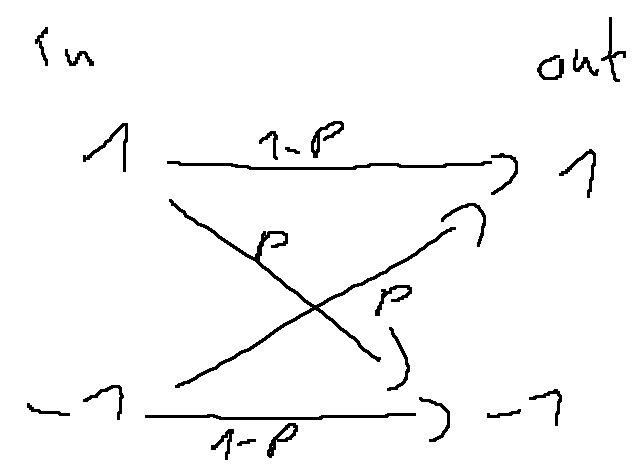 in out
1 1-P 1
P
P
-1 1-P -1